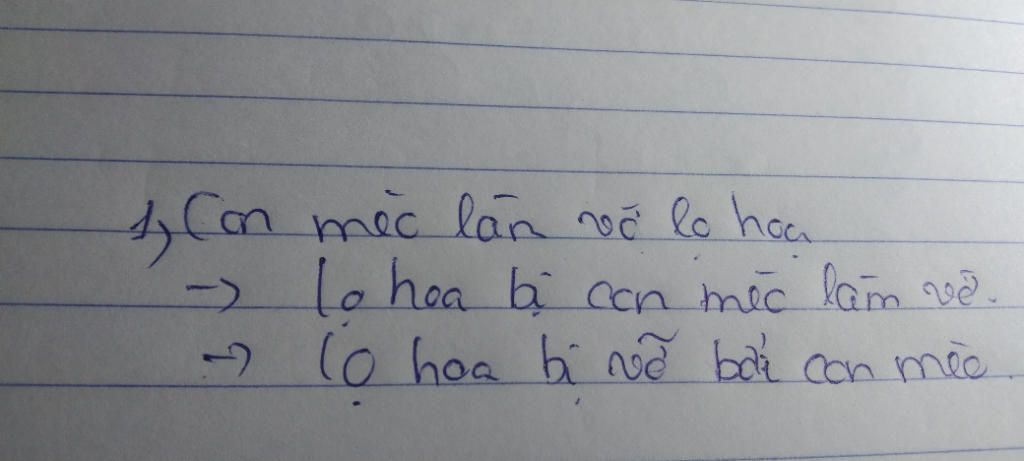 1, Con mèo làm vỡ lọ hoa
→ lọ hoa bị con mèo làm vỡ.
→ lọ hoa bị vỡ bởi con mèo.